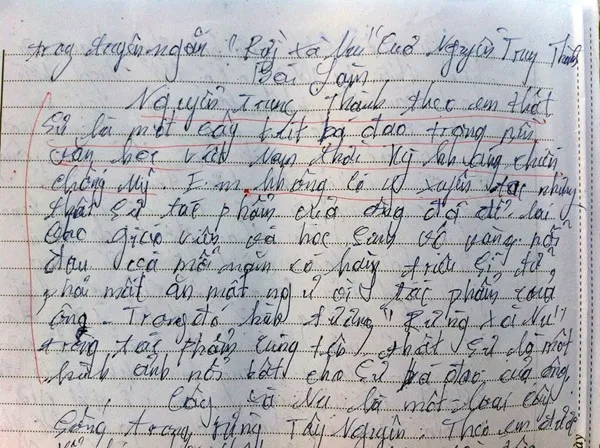 trong truyện ngắn "Rừng xà Nu" Của Nguyễn Trung Thành
Bài Làm
Nguyễn Trung Thành theo em thật
sự là một cây bút bá đạo trong nền
văn học việt Nam thời kỳ kháng chiến
chống Mỹ. Em không có ý xuyên tạc nhưng
thật sự tác phẩm của ông đã để lại
cho giáo viên và học sinh vô vàng nỗi
đau cả mỗi năm có hàng triệu sĩ tử
phải mất ăn mất ngủ với tác phẩm của
ông - Trong đó hình tượng "Rừng xà Nu"
trong tác phẩm cùng tên, thật sự là một
hình ảnh nổi bật cho sự bá đạo của ông,
Cây xà Nu là một loại cây
sống trong rừng Tây Nguyên, Theo em được